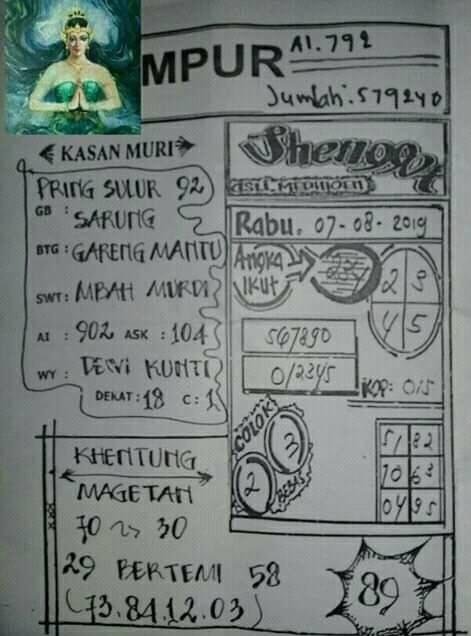 MPUR
A1.792
Jumlah: 579240
KASAN MURI
PRING SULUR 92
GB : SARUNG
BTG : GARENG MANTU
SWT : MBAH MURDI
AI : 902 ASK : 104
WY : DEWI KUNTI
DEKAT : 18 C : 1
ASLI MEDIUOEN
Rabu. 07-08-2019
Angka
IKUT
2 3
4 5
567890
012345
KOP: 0/5
COLOK
3
2
BEBAS
51 82
70 63
04 95
KHENTUNG
MAGETAN
70 30
29 BERTEMU 58
(73.84.12.03)
89